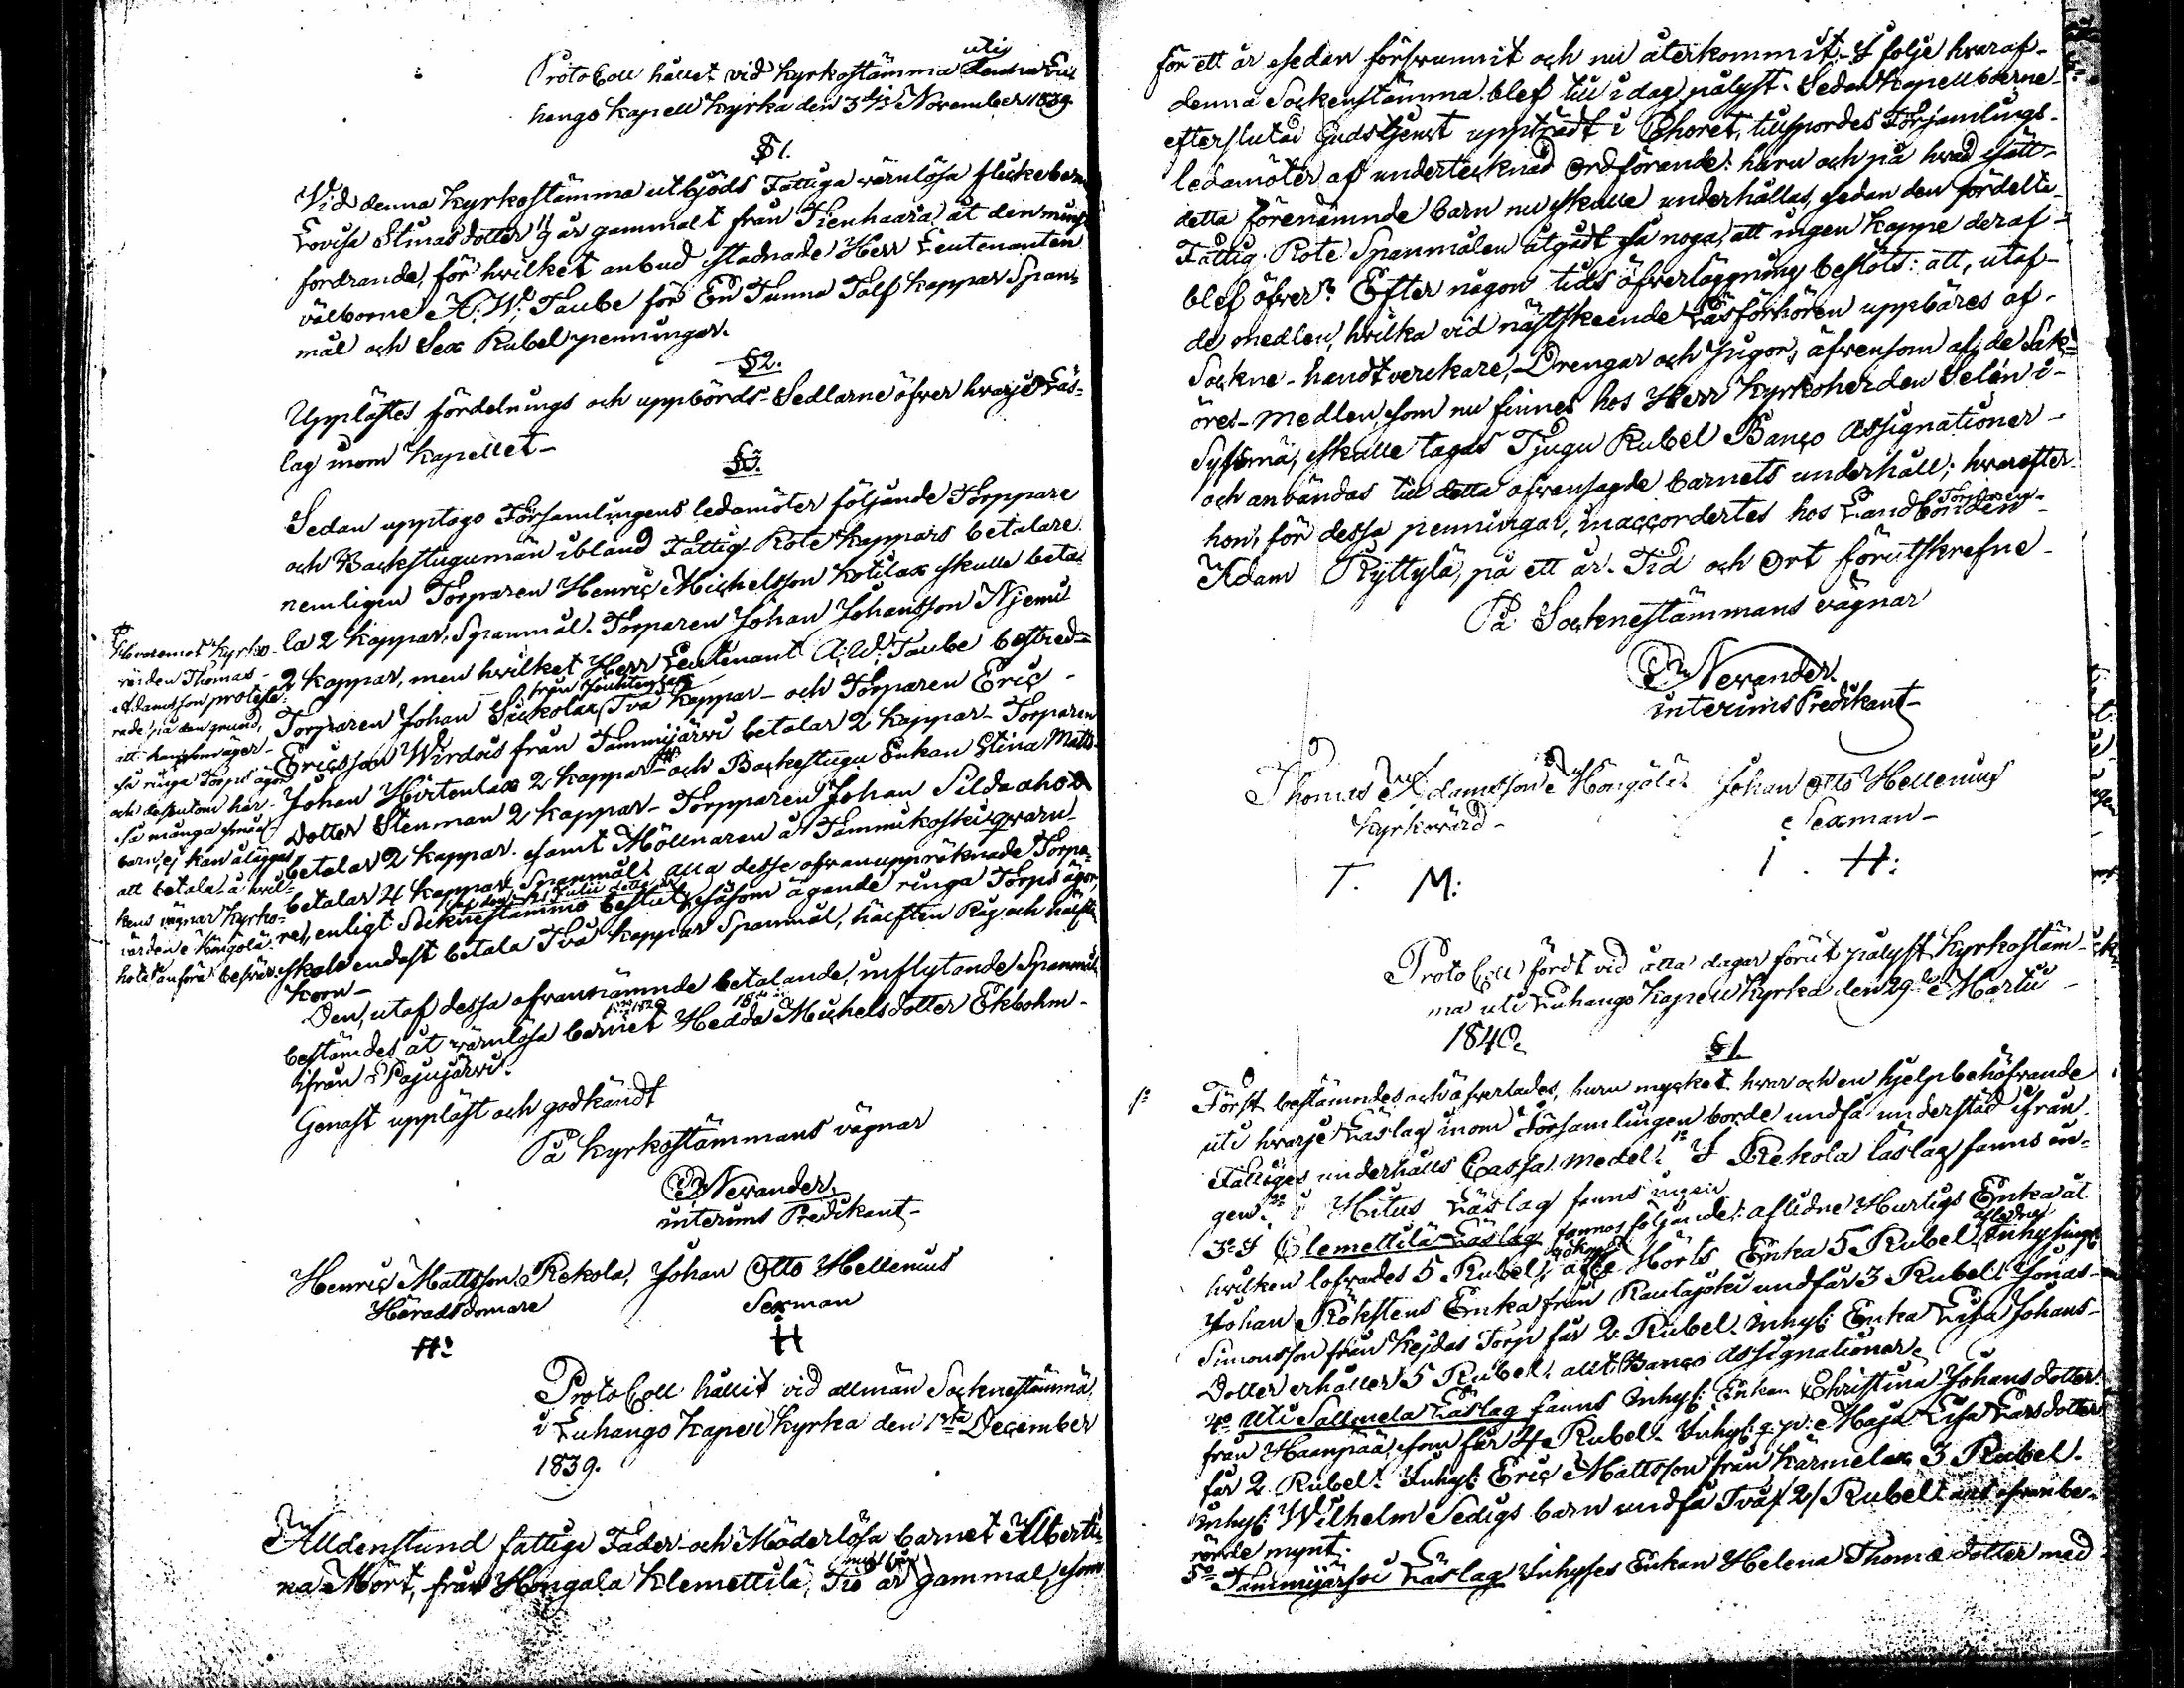 ProtoColl hållet vid Kyrkostämma uti Lu
hango Kapell Kyrka den 3dje November 1839.
§ 1.
Vid denna Kyrkostämma utbjöds Fattiga värnlösa flickebarn
Lovisa Stinasdotter år gammalt från Tienhaara åt den minst
fordrande, för hvilket anbud stadnade Herr Lieutenanten
välborne A: W: Taube för En Tunna Tolf kappar Span-
mål och Sex Rubel penningar.
§ 2.
Upplästes fördelnings och uppbörds-Sedlarne öfver hvarje Läs-
lag inom Kapellet-
§ 3.
Sedan upptogo Församlingens ledamöter följande Torppare
och Backstugumän ibland Fattig-Rote Kappars betalare
nemligen Torparen Henric Michelsson Kotilax skulle beta-
la 2 kappar, Spanmål. Torparen Johan Johansson Njemi
2 kappar, men hvilket Herr Lieutenant A: W: Taube bestred-
från
Torparen Johan Två kappar- och Torparen Eric
Ericsson Wirdois från Tammijärvi betalar 2 kappar- Torparen
Johan Hirtenlax 2 kappar- och Backstugu Enkan Stina Matts-
Dotter Stenman 2 kappar- Torpparen Johan Sildaaho
betalar 2 kappar. samt Möllnaren å Tammikoski qvarn
betalar 4 kappar Spanmål. alla desse ofvanuppräknade Torpa-
re, enligt Sockenstämmo beslut, såsom ägande ringa Torps ägor,
skola endast betala Två kappar Spanmål, hälften Råg och hälften
Korn-
Hvaremot Kyrko-
värden Thomas
Adamsson proteste-
rade, på den grund,
att han som äger
så ringa Torps ägor
och dessutom har
så många små
barn, ej kan åläggas
att betala, å hvil-
kens vägnar Kyrko-
värden Hongola
anföra besvär.
Den, utaf dessa ofvannämnde betalande, inflytande Spanmål
bestämdes åt värnlösa barnet Hedda Michelsdotter Ekbohm
ifrån Pajujärvi.
Genast uppläst och godkändt
På Kyrkostämmans vägnar
Nevander.
interims Predikant-
Henric Mattsson Rekola, Johan Otto Hellenius
Häradsdomare Sexman
H: H
ProtoColl hållit vid allmän Socknestämma
i Luhango Kapell Kyrka den 1sta December
1839.
Alldenstund fattige Fader- och Moderlösa barnet Alberti-
na Mört, från Hongala Klemettilä, Tio år gammal, som
för ett år sedan försvunnit och nu återkommit. I följe hvaraf-
denna Sockenstämma blef till i dag pålyst. Sedan Kapellboerne-
efter slutad Gudstjenst uppträdt i Choret, tillspordes Församlings-
ledamöter af undertecknad Ordförande: huru och på hvad sätt-
detta förenämnde barn nu skulle underhållas, sedan den fördelte-
Fattig-Rote Spanmålen utgådt så noga, att ingen kappe deraf-
blef öfver? Efter någon tids öfverläggning beslöts: att, utaf-
de medlen, hvilka vid nästskeende Läsförhören uppbäres af-
Sockne-handtverckare, Drengar och Pigor, äfvensom af de Sak-
öres-medlen, som nu finnes hos Herr Kyrkoherden Selén i-
Sysmä, skulle tagas Tjugu Rubel Banco Assignationer-
och användas till detta ofvansagde barnets underhåll; hvarefter
hon, för dessa penningar, inaccorderades hos Landbonden
Torparen
Adam Kyttylä, på ett år. Tid och Ort förutskrefne-
På Sockenstämmans vägnar
Nevander.
interims Predikant-
Thomas Adamsson Hongola. Johan Otto Hellenius
Kyrkovärd- Sexman-
T. M: I. H:
ProtoColl fördt vid åtta dagar förut pålyst Kyrkostäm-
ma uti Luhango Kapell Kyrka den 29de Martii
1840.
§ 1.
Först bestämndes och öfverlades, huru mycket hvar och en hjelpbehöfvande
uti hvarje Läslag inom Församlingen borde undfå understöd ifrån
Fattiges underhålls Cassa medel. 1o I Rekola läslag fanns in-
gen. 2o i Hutus Läslag fanns ingen
3o I Clemettilä Läslag fannes följande: aflidne Hurtigs Enka åt
hvilken lofvades 5 Rubel, Mörts Enka 5 Rubel, Inhysinge
Johan Rökstens Enka från Rautajoki undfår 3 Rubel. Jonas
Simonsson från Kejdas Torp får 2 Rubel. Inhys: Enka Lisa Johans-
Dotter erhåller 5 Rubel, allt Banco Assignationer.
4o Uti Sallmela Läslag fanns Inhys: Enkan Christina Johansdotter
från Haanpää, som får 4 Rubel. Inhys: q. p. Maja Lisa Larsdotter
får 2 Rubel. Inhys: Eric Mattsson från Kärmelax 3 Rubel.
Inhys: Wilhelm Sedigs barn undfå Två /2/ Rubel allt ofvanbe-
rörde mynt.
5o Tammijärvi Läslag Inhyses Enkan Helena Thomæ dotter med